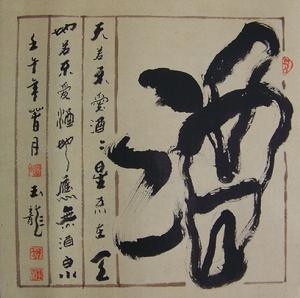 酒
天若不愛酒酒星不在天
地若不愛酒地應無酒泉
壬午年 月 玉龍